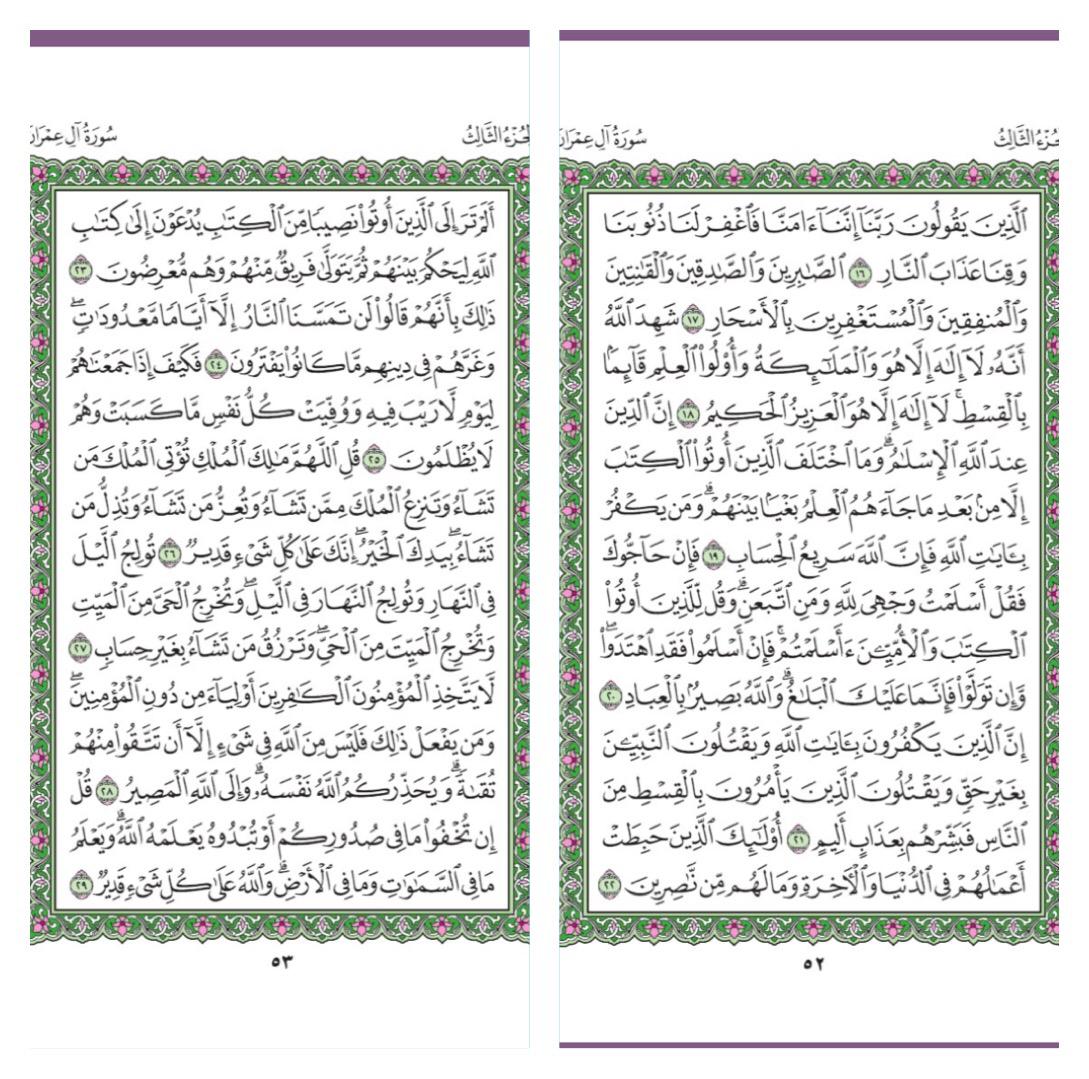 الجُزْءُ الثَّالِثُ
سُورَةُ آلِ عِمْرَان
ٱلَّذِينَ يَقُولُونَ رَبَّنَآ إِنَّنَآ ءَامَنَّا فَٱغْفِرْ لَنَا ذُنُوبَنَا
وَقِنَا عَذَابَ ٱلنَّارِ ١٦ ٱلصَّٰبِرِينَ وَٱلصَّٰدِقِينَ وَٱلْقَٰنِتِينَ
وَٱلْمُنفِقِينَ وَٱلْمُسْتَغْفِرِينَ بِٱلْأَسْحَارِ ١٧ شَهِدَ ٱللَّهُ
أَنَّهُۥ لَآ إِلَٰهَ إِلَّا هُوَ وَٱلْمَلَٰٓئِكَةُ وَأُو۟لُوا۟ ٱلْعِلْمِ قَآئِمًۢا
بِٱلْقِسْطِ ۚ لَآ إِلَٰهَ إِلَّا هُوَ ٱلْعَزِيزُ ٱلْحَكِيمُ ١٨ إِنَّ ٱلدِّينَ
عِندَ ٱللَّهِ ٱلْإِسْلَٰمُ ۗ وَمَا ٱخْتَلَفَ ٱلَّذِينَ أُوتُوا۟ ٱلْكِتَٰبَ
إِلَّا مِنۢ بَعْدِ مَا جَآءَهُمُ ٱلْعِلْمُ بَغْيًۢا بَيْنَهُمْ ۗ وَمَن يَكْفُرْ
بِـَٔايَٰتِ ٱللَّهِ فَإِنَّ ٱللَّهَ سَرِيعُ ٱلْحِسَابِ ١٩ فَإِنْ حَآجُّوكَ
فَقُلْ أَسْلَمْتُ وَجْهِىَ لِلَّهِ وَمَنِ ٱتَّبَعَنِ ۗ وَقُل لِّلَّذِينَ أُوتُوا۟
ٱلْكِتَٰبَ وَٱلْأُمِّيِّـۧنَ ءَأَسْلَمْتُمْ ۚ فَإِنْ أَسْلَمُوا۟ فَقَدِ ٱهْتَدَوا۟ ۖ
وَّإِن تَوَلَّوْا۟ فَإِنَّمَا عَلَيْكَ ٱلْبَلَٰغُ ۗ وَٱللَّهُ بَصِيرٌۢ بِٱلْعِبَادِ ٢٠
إِنَّ ٱلَّذِينَ يَكْفُرُونَ بِـَٔايَٰتِ ٱللَّهِ وَيَقْتُلُونَ ٱلنَّبِيِّـۧنَ
بِغَيْرِ حَقٍّ وَيَقْتُلُونَ ٱلَّذِينَ يَأْمُرُونَ بِٱلْقِسْطِ مِنَ
ٱلنَّاسِ فَبَشِّرْهُم بِعَذَابٍ أَلِيمٍ ٢١ أُو۟لَٰٓئِكَ ٱلَّذِينَ حَبِطَتْ
أَعْمَٰلُهُمْ فِى ٱلدُّنْيَا وَٱلْءَاخِرَةِ وَمَا لَهُم مِّن نَّٰصِرِينَ ٢٢
٥٢
الجُزْءُ الثَّالِثُ
سُورَةُ آلِ عِمْرَان
أَلَمْ تَرَ إِلَى ٱلَّذِينَ أُوتُوا۟ نَصِيبًا مِّنَ ٱلْكِتَٰبِ يُدْعَوْنَ إِلَىٰ كِتَٰبِ
ٱللَّهِ لِيَحْكُمَ بَيْنَهُمْ ثُمَّ يَتَوَلَّىٰ فَرِيقٌ مِّنْهُمْ وَهُم مُّعْرِضُونَ ٢٣
ذَٰلِكَ بِأَنَّهُمْ قَالُوا۟ لَن تَمَسَّنَا ٱلنَّارُ إِلَّآ أَيَّامًا مَّعْدُودَٰتٍ ۖ
وَغَرَّهُمْ فِى دِينِهِم مَّا كَانُوا۟ يَفْتَرُونَ ٢٤ فَكَيْفَ إِذَا جَمَعْنَٰهُمْ
لِيَوْمٍ لَّا رَيْبَ فِيهِ وَوُفِّيَتْ كُلُّ نَفْسٍ مَّا كَسَبَتْ وَهُمْ
لَا يُظْلَمُونَ ٢٥ قُلِ ٱللَّهُمَّ مَٰلِكَ ٱلْمُلْكِ تُؤْتِى ٱلْمُلْكَ مَن
تَشَآءُ وَتَنزِعُ ٱلْمُلْكَ مِمَّن تَشَآءُ وَتُعِزُّ مَن تَشَآءُ وَتُذِلُّ مَن
تَشَآءُ ۖ بِيَدِكَ ٱلْخَيْرُ ۖ إِنَّكَ عَلَىٰ كُلِّ شَىْءٍ قَدِيرٌ ٢٦ تُولِجُ ٱلَّيْلَ
فِى ٱلنَّهَارِ وَتُولِجُ ٱلنَّهَارَ فِى ٱلَّيْلِ ۖ وَتُخْرِجُ ٱلْحَىَّ مِنَ ٱلْمَيِّتِ
وَتُخْرِجُ ٱلْمَيِّتَ مِنَ ٱلْحَىِّ ۖ وَتَرْزُقُ مَن تَشَآءُ بِغَيْرِ حِسَابٍ ٢٧
لَّا يَتَّخِذِ ٱلْمُؤْمِنُونَ ٱلْكَٰفِرِينَ أَوْلِيَآءَ مِن دُونِ ٱلْمُؤْمِنِينَ ۖ
وَمَن يَفْعَلْ ذَٰلِكَ فَلَيْسَ مِنَ ٱللَّهِ فِى شَىْءٍ إِلَّآ أَن تَتَّقُوا۟ مِنْهُمْ
تُقَىٰةً ۗ وَيُحَذِّرُكُمُ ٱللَّهُ نَفْسَهُۥ ۗ وَإِلَى ٱللَّهِ ٱلْمَصِيرُ ٢٨ قُلْ
إِن تُخْفُوا۟ مَا فِى صُدُورِكُمْ أَوْ تُبْدُوهُ يَعْلَمْهُ ٱللَّهُ ۗ وَيَعْلَمُ
مَا فِى ٱلسَّمَٰوَٰتِ وَمَا فِى ٱلْأَرْضِ ۗ وَٱللَّهُ عَلَىٰ كُلِّ شَىْءٍ قَدِيرٌ ٢٩
٥٣